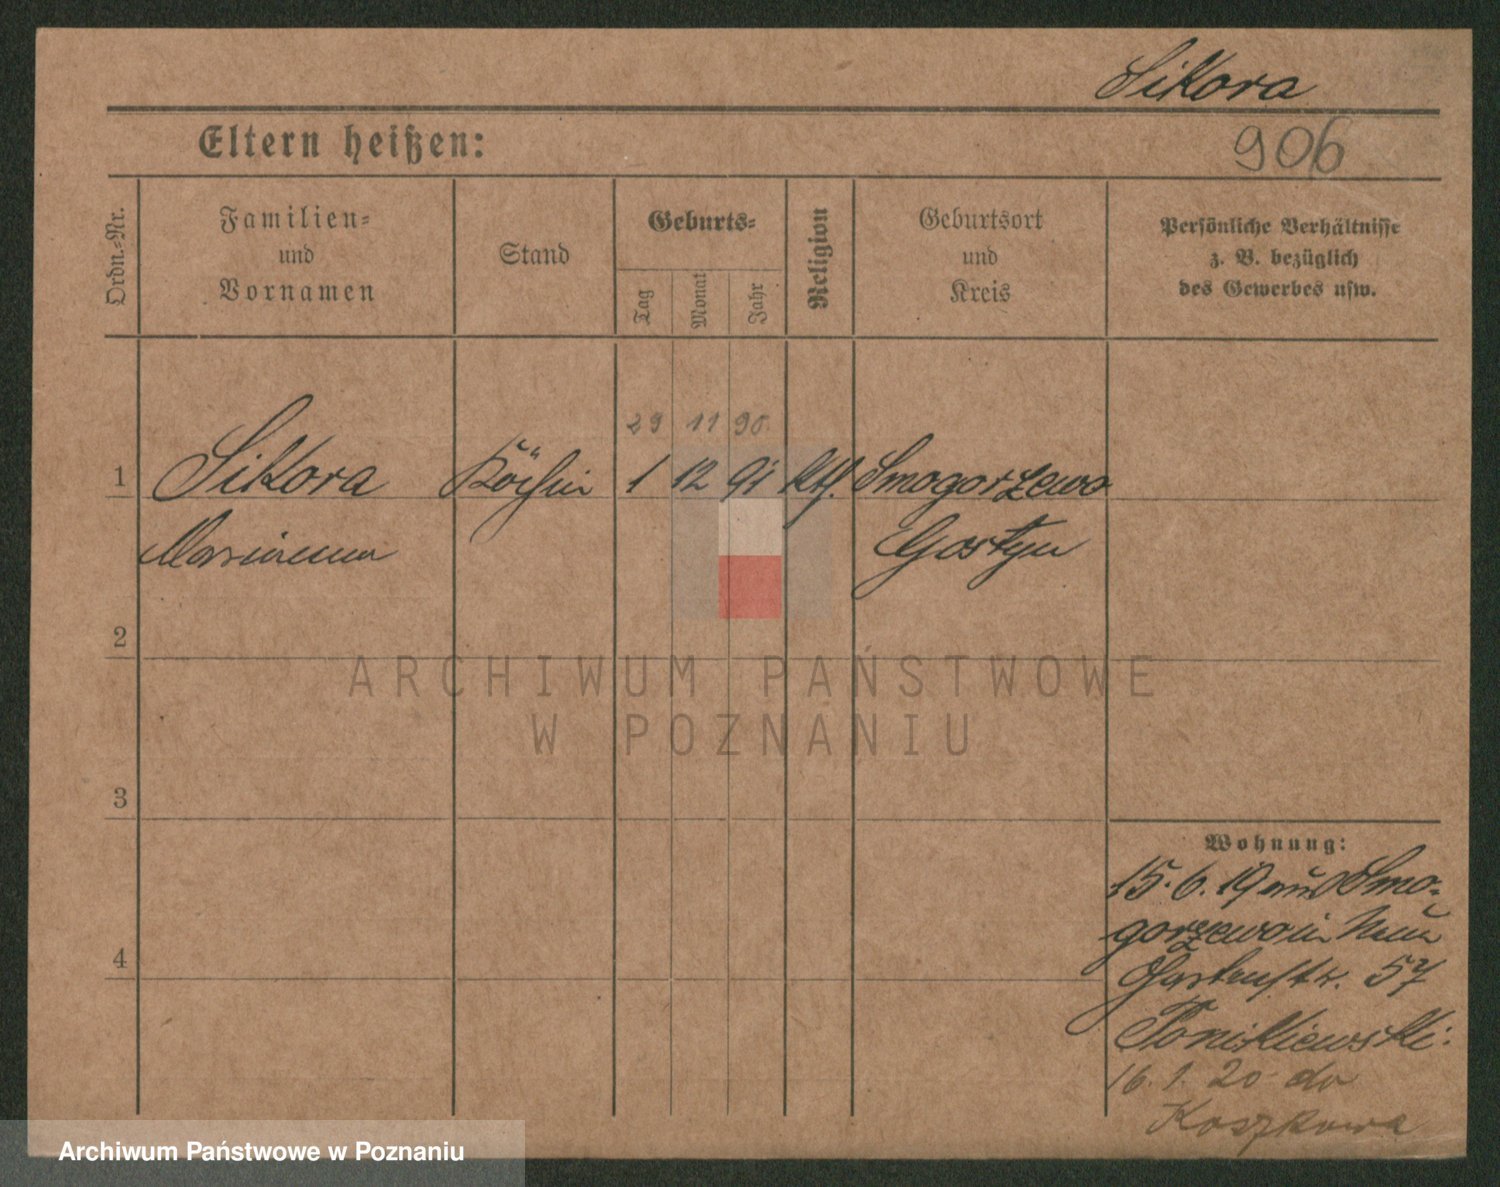 Sikora
906
Eltern heißen:
Ordn.-Nr.
Familien-
und
Vornamen
Stand
Geburts-
Tag
Monat
Jahr
Religion
Geburtsort
und
Kreis
Persönliche Verhältnisse
z. B. bezüglich
des Gewerbes usw.
29 11 90.
1 Sikora Köchin 1 12 91 kth. Smogorzewo
Marianna Gostyn
2
3
4
Wohnung:
15. 6. 19 aus Smo-
gorzewo in
Gartenstr. 57
Ponikiewski.
16. 1. 20 do
Koszkowa
ARCHIWUM PAŃSTWOWE
W POZNANIU
Archiwum Państwowe w Poznaniu